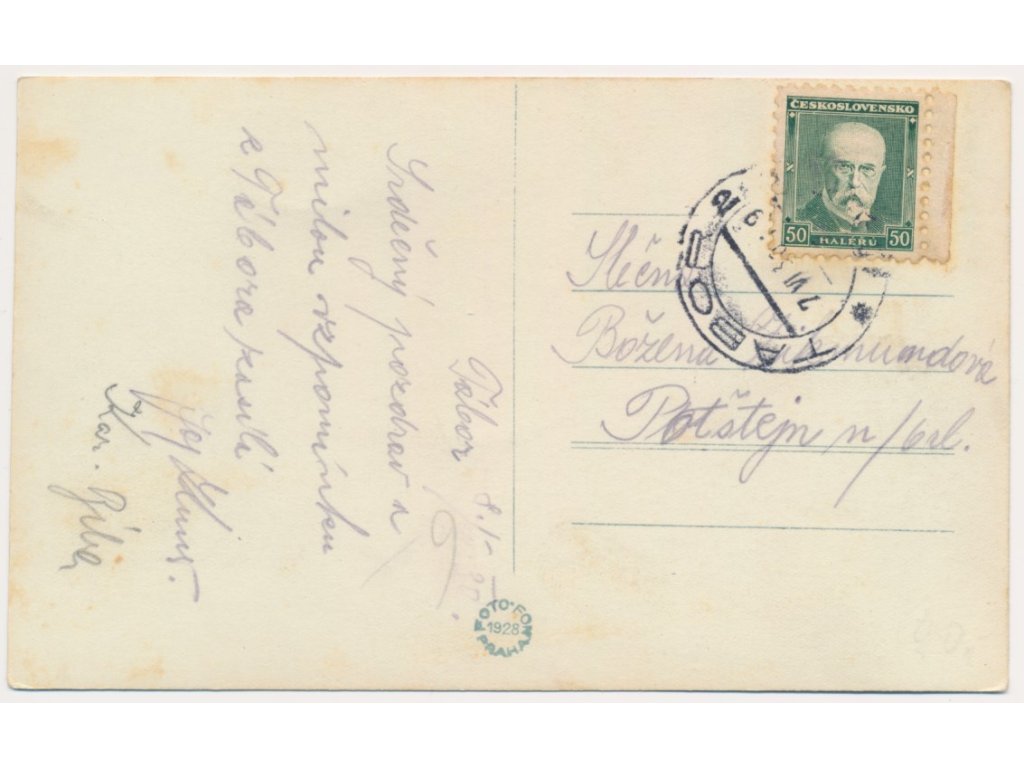 Srdečný pozdrav a
milou vzpomínku
z Tábora zasílá
Kar.
Tábor
ČESKOSLOVENSKO
50 HALÉŘŮ 50
TABOR 2
Slečna
Božena
Potštejn n/Orl.
FOTO-FON
1928
PRAHA